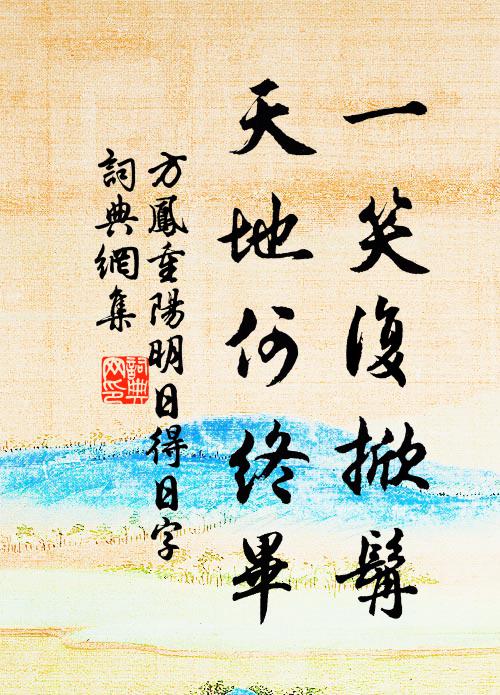 一笑復掀髯
天地何終畢
方鳳重陽明日得日字
詞典網集
詞典网印